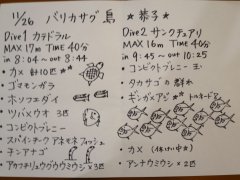 11/26 バリカサグ島 ☆恭子☆
Dive1 カテドラル
MAX 17m TIME 40分
in 8:04 〜 out 8:44
・カメ 計10匹
・ゴマモンガラ
・ホソフエダイ
・ツバメウオ 3匹
・コンビクトブレニー
・スパインチークアネモネフィッシュ
・チンアナゴ
Dive2 サンクチュアリ
MAX 16m TIME 40分
in 9:45 〜 out 10:25
・コンビクトブレニー 玉
・タカサゴの群れ
・ギンガメアジ ☆トルネード☆
・カメ (休けい中)
・アンナウミウシ×2匹